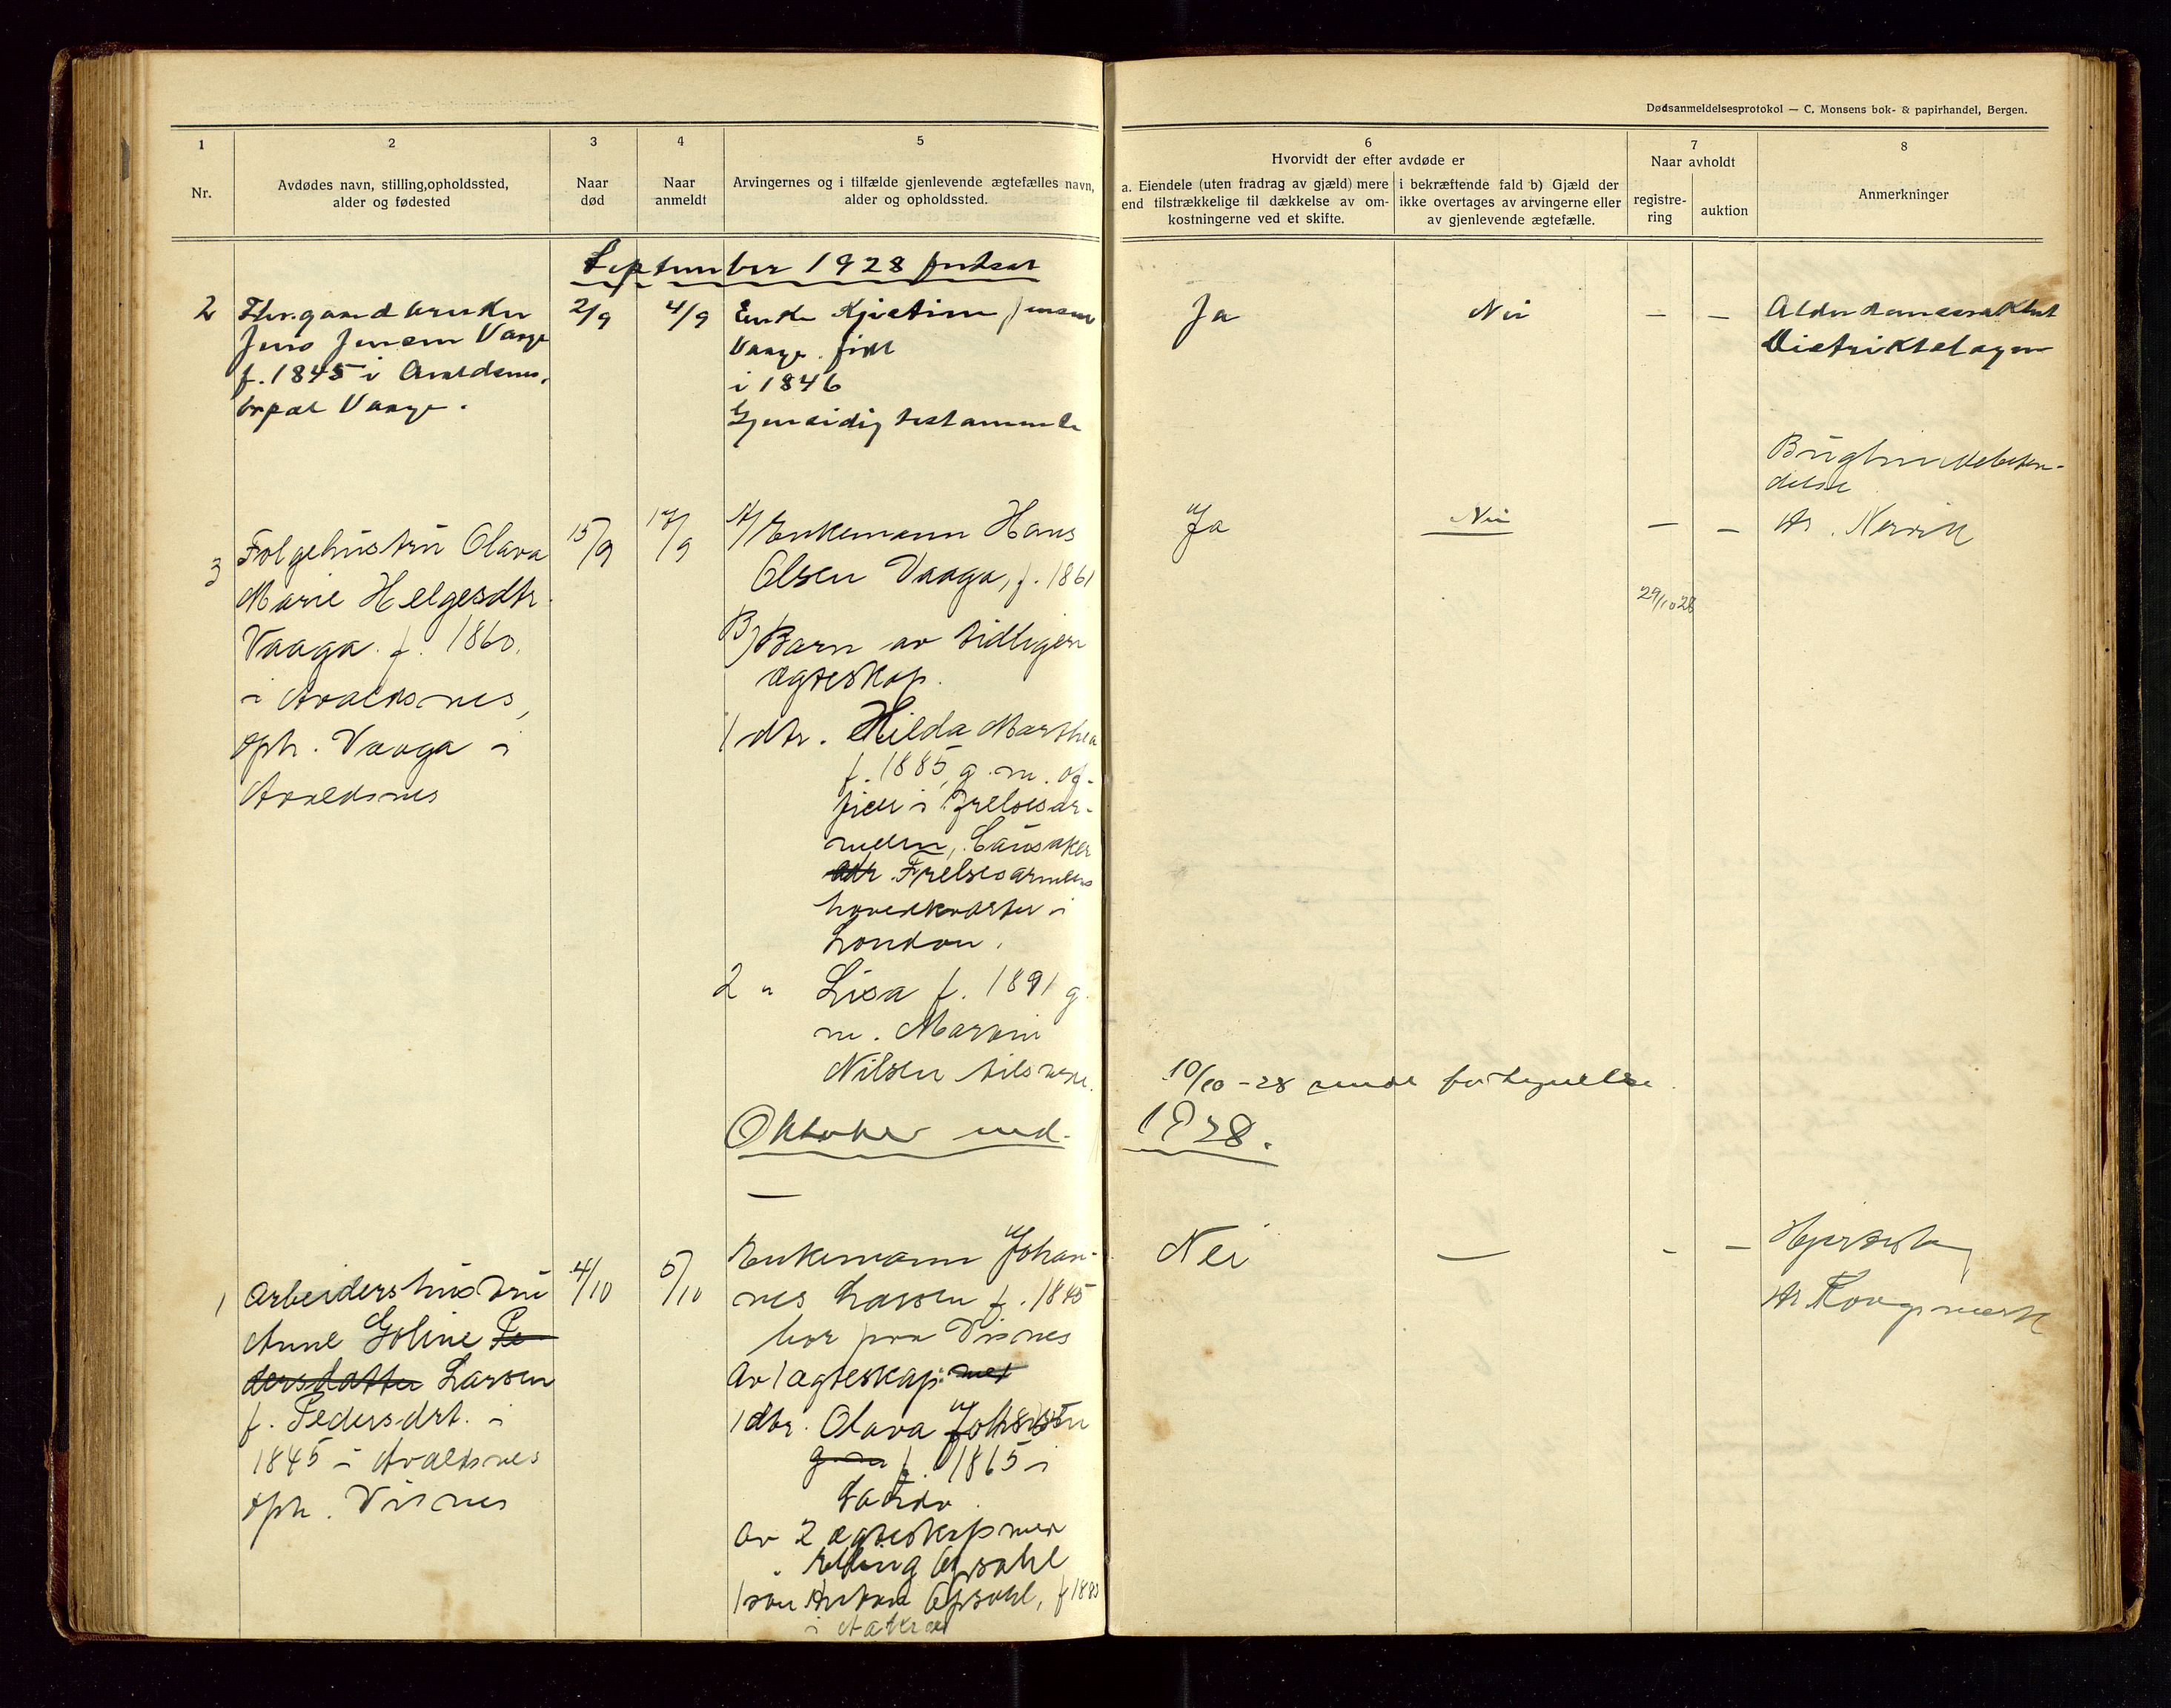 Dødsanmeldelsesprotokol — C. Monsens bok- & papirhandel, Bergen.
1
2
3
4
5
6
7
8
Nr.
Avdødes navn, stilling, opholdssted,
alder og fødested
Naar
død
Naar
anmeldt
Arvingernes og i tilfælde gjenlevende ægtefælles navn,
alder og opholdssted.
Hvorvidt der efter avdøde er
a. Eiendele (uten fradrag av gjæld) mere
end tilstrækkelige til dækkelse av om-
kostningerne ved et skifte.
i bekræftende fald b) Gjæld der
ikke overtages av arvingerne eller
av gjenlevende ægtefælle.
Naar avholdt
registre-
ring
auktion
Anmerkninger
September 1928 fortsat
2
Fhv. gaardbruker
Jens Jensen Vaage
f. 1845 i Avaldsnes,
bopæl Vaage.
2/9
4/9
Enke Kjistine Jensen
Vaage. født
i 1846
Gjensidig testamente
Ja
Nei
—
—
Alderdomssvakhet
Distriktslægen
3
Følgehustru Olava
Marie Helgesdtr.
Vaaga. f. 1860.
i Avaldsnes,
oph. Vaaga i
Avaldsnes
15/9
17/9
A/ Enkemann Hans
Olsen Vaaga, f. 1861
B) Barn av tidligere
ægteskap.
1 dtr. Hilda Marthea
f. 1885, g. m. of-
ficer i Frelsesar-
meen,
Frelsesarmeens
hovedkvarter i
London.
2 " Lisa f. 1891 g.
m. Martin
Nilsen
Ja
Nei
—
—
29/10 28
delse
dr.
10/10 - 28 sendt fortegnelse.
Oktober md. 1928.
—
1
Arbeidershustru
Anne Goline Pe-
dersdatter Larsen
f. Pedersdrt. i
1845 i Avaldsnes
oph. Visnes
4/10
5/10
Enkemann Johan-
nes Larsen f. 1845
bor paa Visnes
Av 1 ægteskap: med
1 dtr. Olava
f. 1865 i
Av 2 ægteskap med
Elling Opsahl
1 søn Anton Opsahl, f 1883
i
Nei
—
-
—
dr